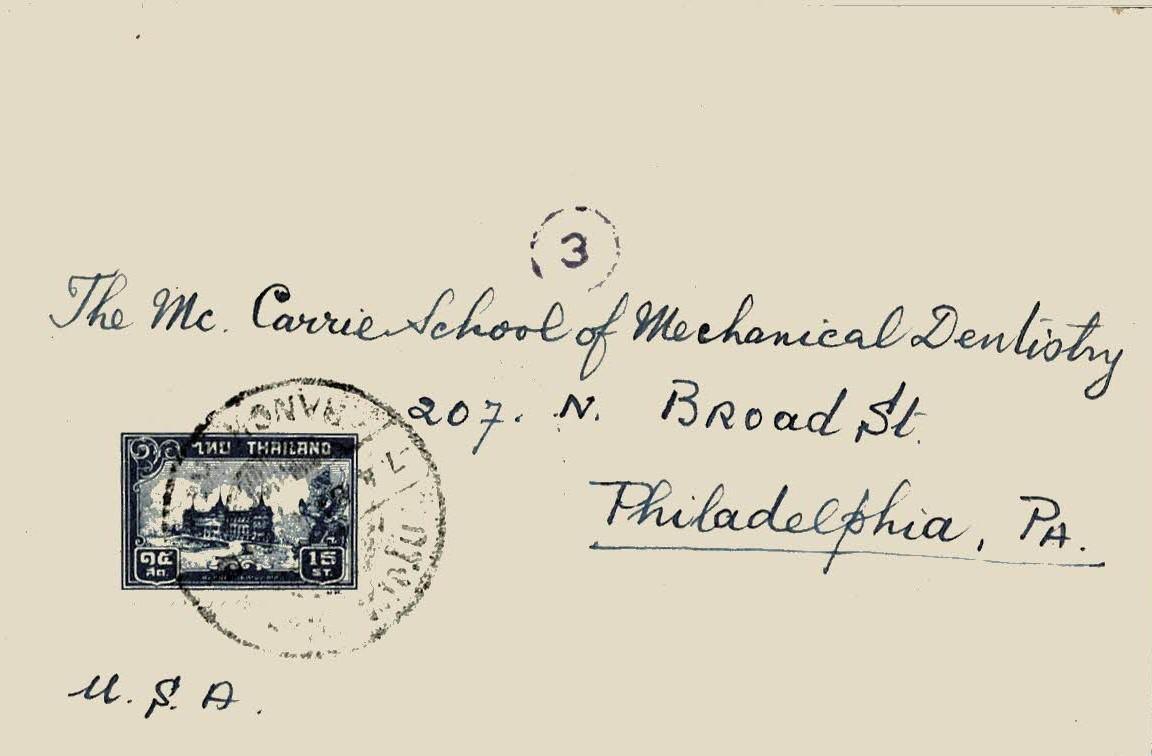 3
The Mc. Carrie School of Mechanical Dentistry
207. N. Broad St.
Philadelphia, PA.
ไทย THAILAND
๑๕ สต. 15 ST.
U.S.A.